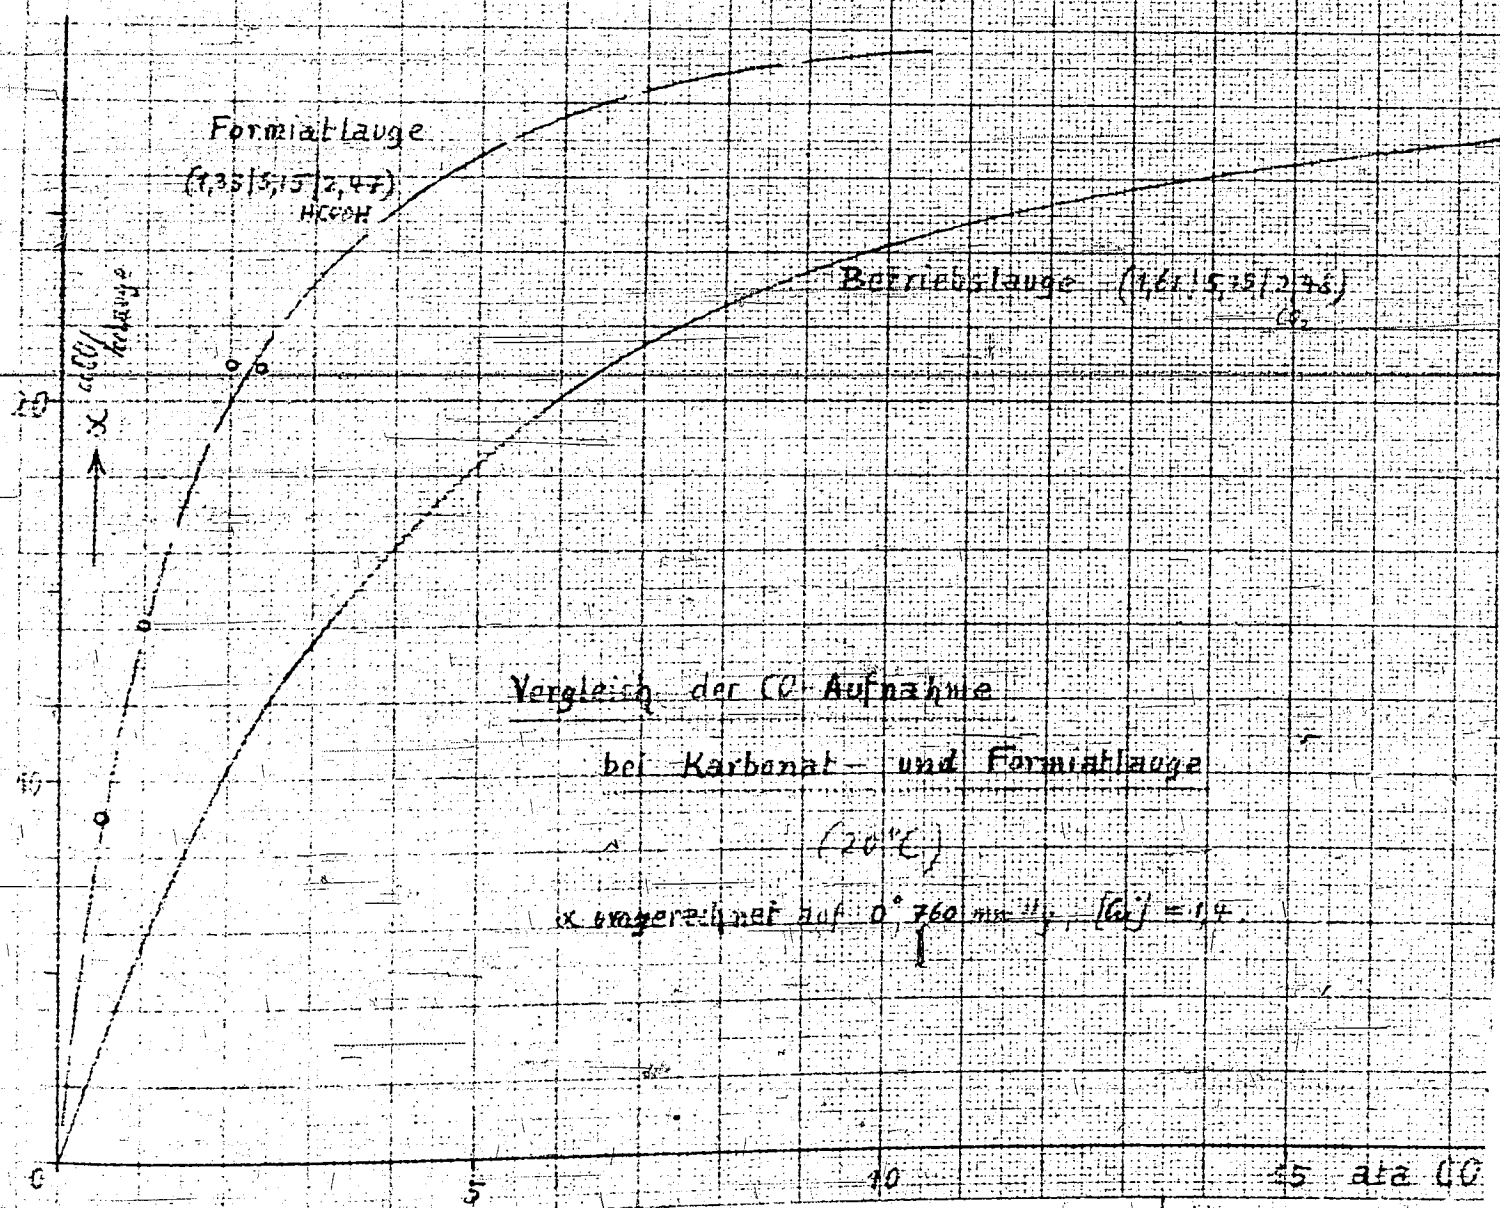 Formiatlauge
(1,35|5,15|2,47)
HCOOH
Betriebslauge (1,61|5,75|2,78)
CO₂
→ α
20
Vergleich der CO-Aufnahme
bei Karbonat- und Formiatlauge
10
(20°C)
α umgerechnet auf 0°, 760 mm Hg, [Cu] = 1,4.
0
5
10
15 ata CO